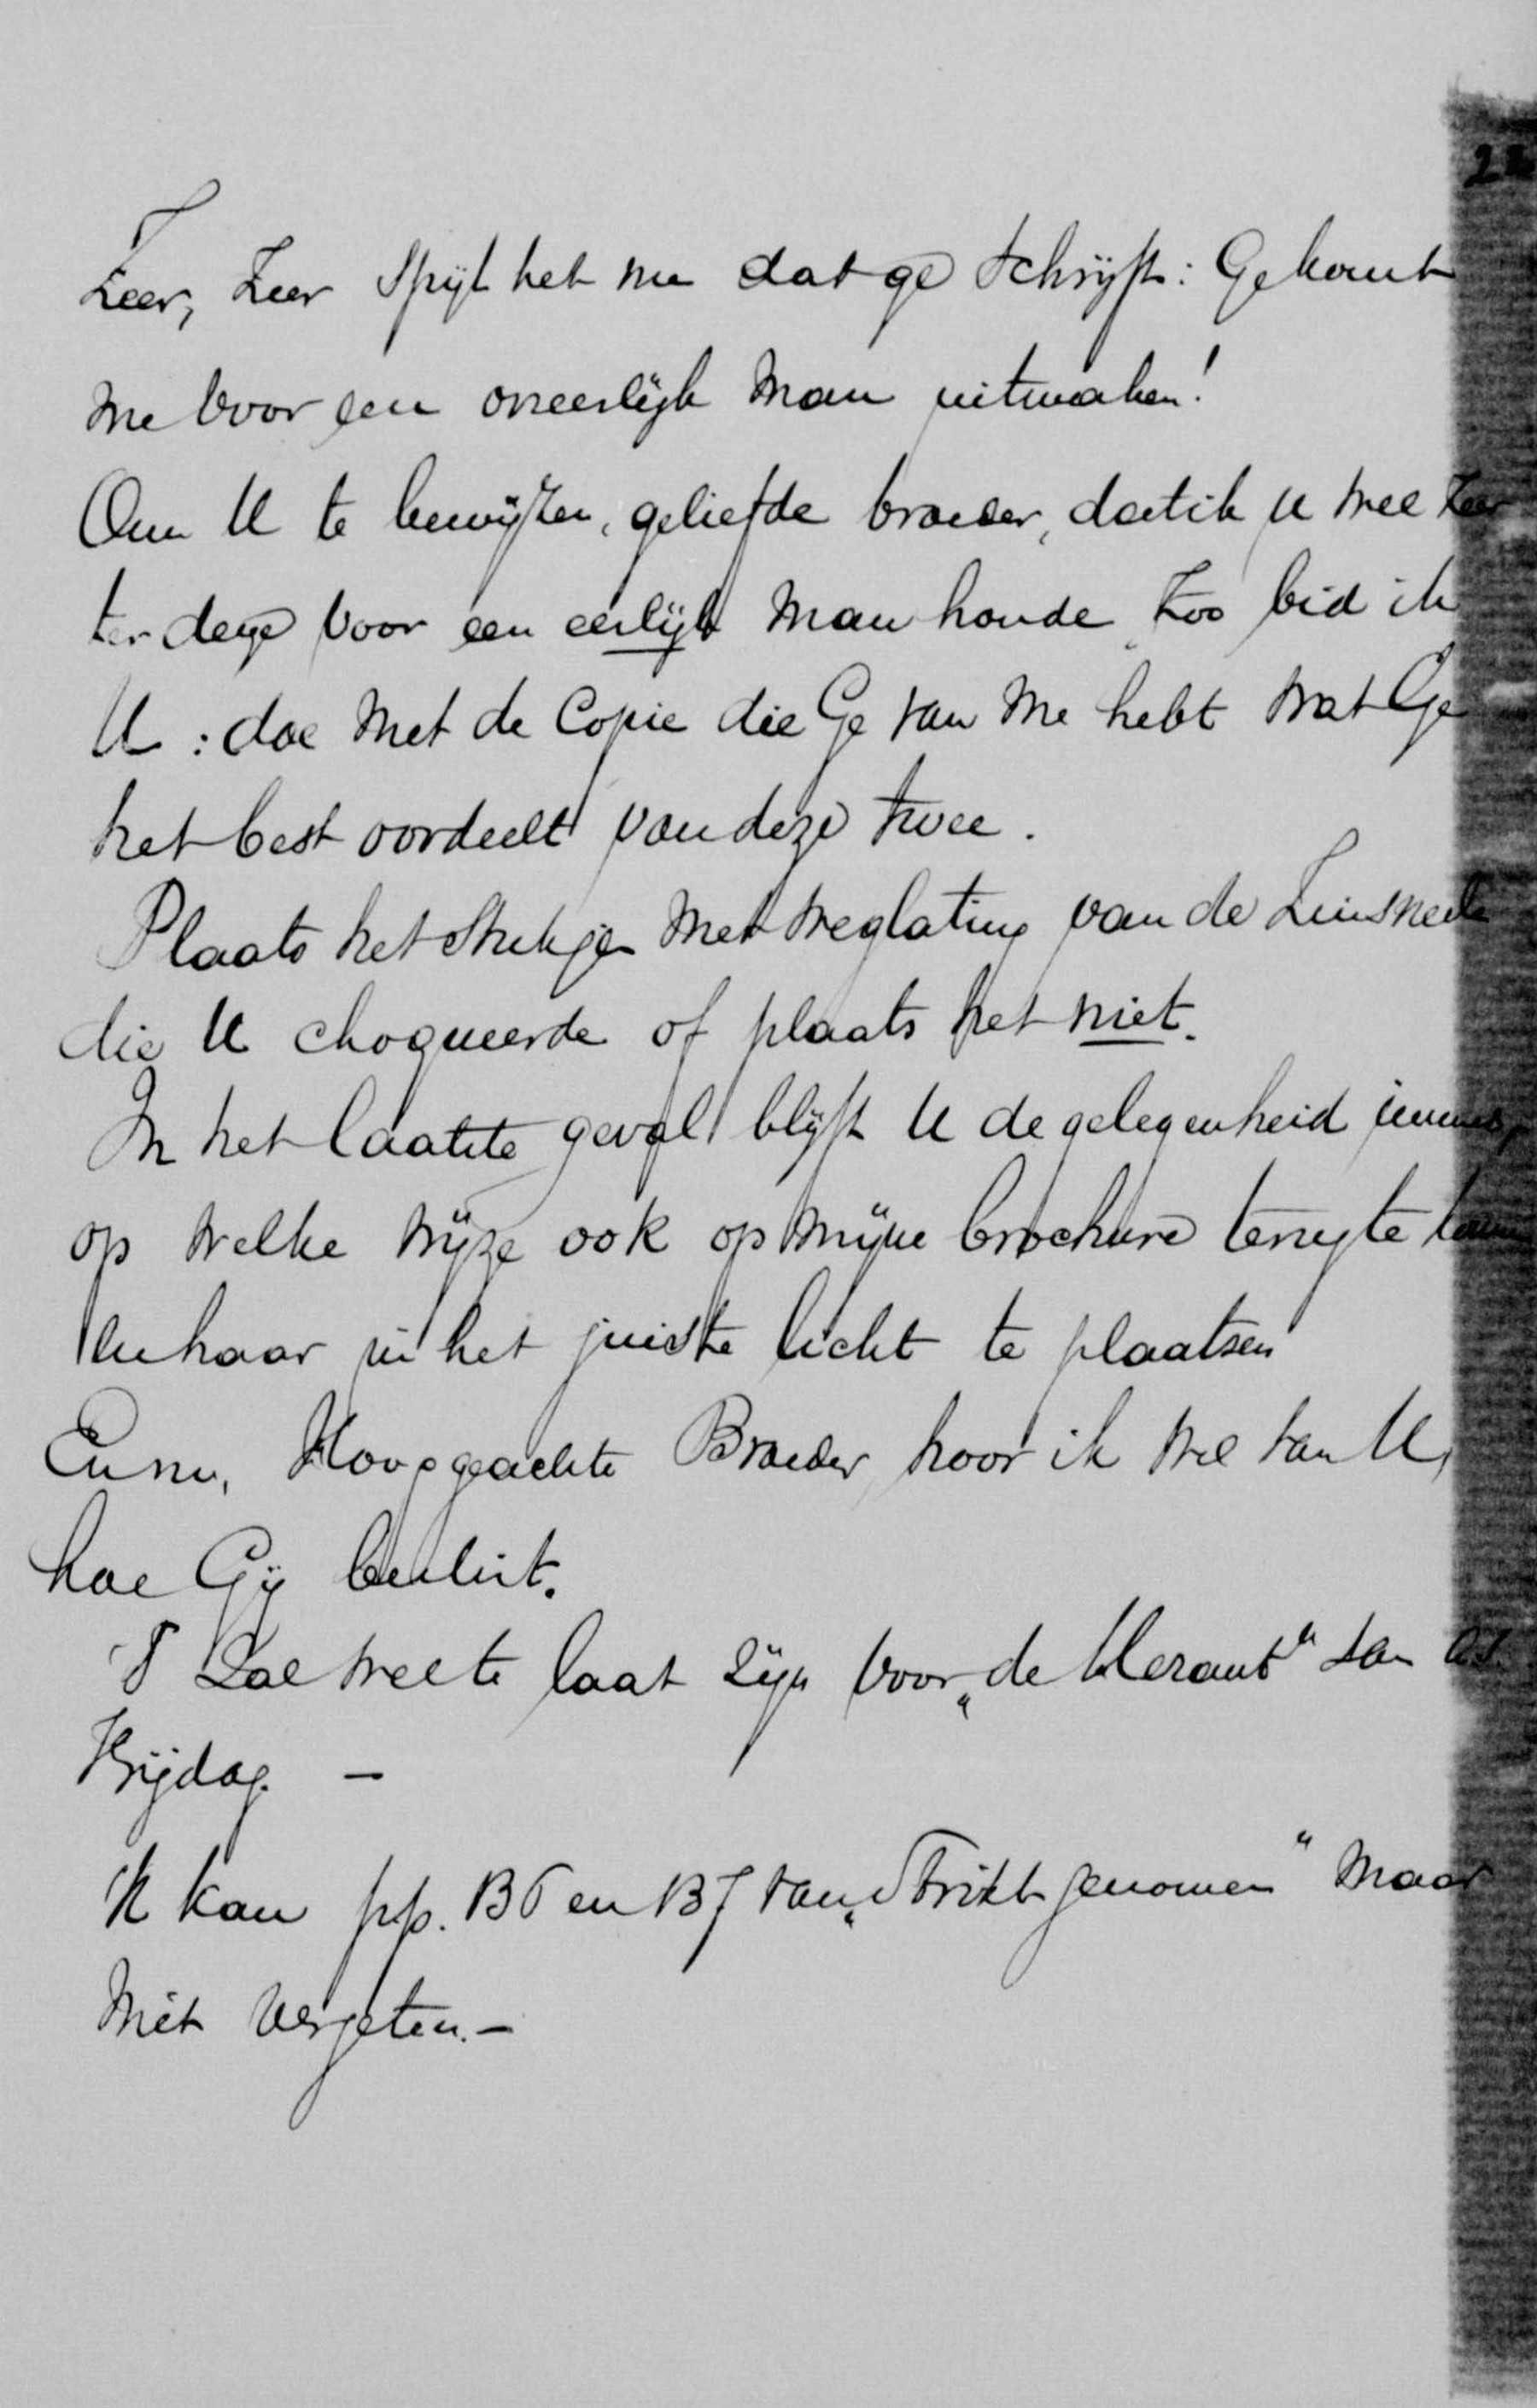 Zeer, Zeer Spijt het me dat ge schrijft: Ge kount
me voor een oneerlijk man uitmaken!
Om U te bewijzen, geliefde broeder, dat ik U wel zeer
ter dege voor een eerlijk man houde zoo bid ik
U: doe met de Copie die Ge van me hebt wat Ge
het best oordeelt van deze twee.
Plaats het stukje met weglating van de Zinsnede
die U choqueerde of plaats het niet.
In het laatste geval blijft U de gelegenheid immers,
op welke wijze ook op mijne brochure terug te komen
en haar in het juiste licht te plaatsen
En nu, Hooggeachte Broeder, hoor ik wel van U,
hoe Gij besluit.
't Zal wel te laat zijn voor „de Heraut" van a.s.
Vrijdag. —
Ik kan pp. 136 en 137 van „Strikt genomen" maar
niet vergeten. —